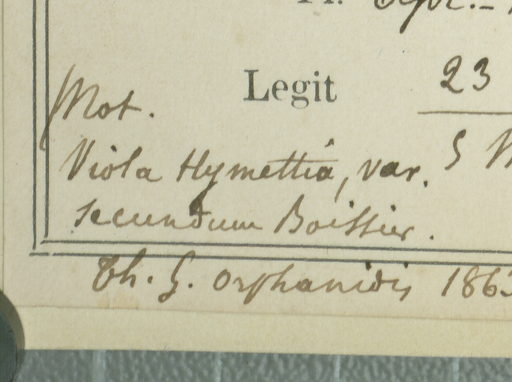 Sept.
Legit 23
Not.
Viola Hymettia, var.
secundum Boissier.
Th. G. Orphanidis 186